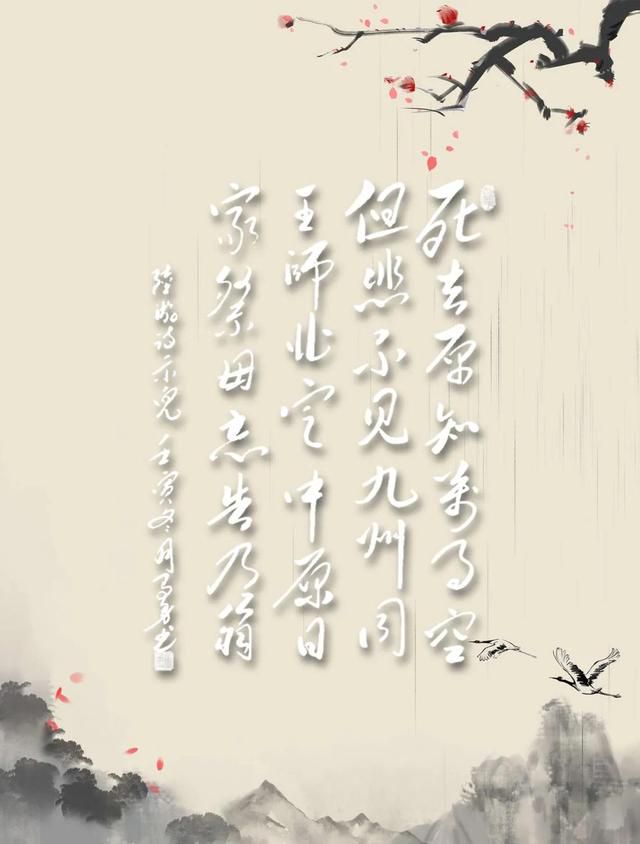 死去原知萬事空
但悲不见九州同
王師北定中原日
家祭毋忘告乃翁
陸游诗示兒壬寅冬月